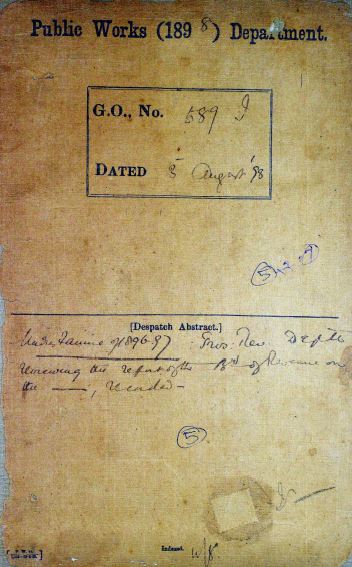 Public Works (1898) Department.
G.O., No. 589 I
DATED 5 August '98
[Despatch Abstract.]
Madras Famine of 1896-97 Gov: Rev. Deptt
reviewing the report of the Bd of Revenue on
the —, recorded –
5
Indexed.